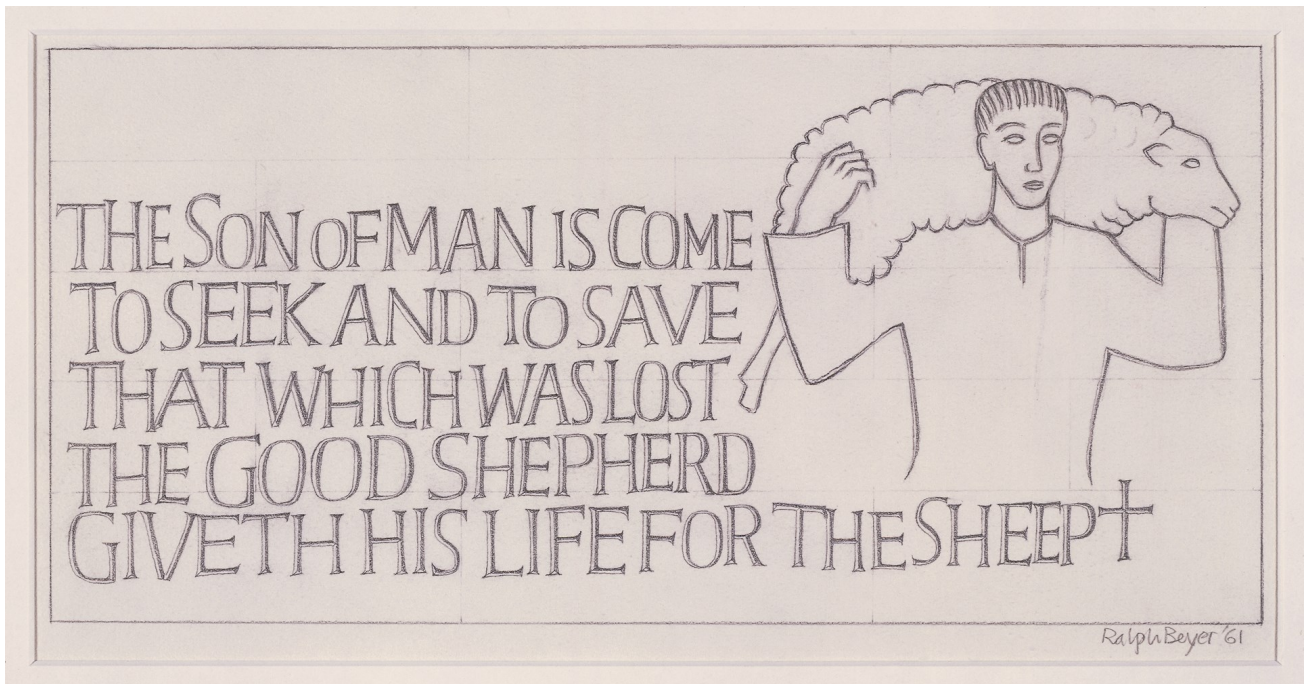 THE SON OF MAN IS COME
TO SEEK AND TO SAVE
THAT WHICH WAS LOST
THE GOOD SHEPHERD
GIVETH HIS LIFE FOR THE SHEEP†
Ralph Beyer '61